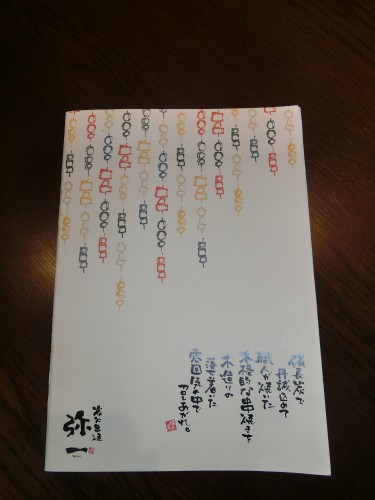 備長炭で
丹誠込めて
職人が焼いた
本格的な串焼きを
木造りの
落ち着いた
雰囲気の中で
召しあがれ。
炭火串焼
弥一